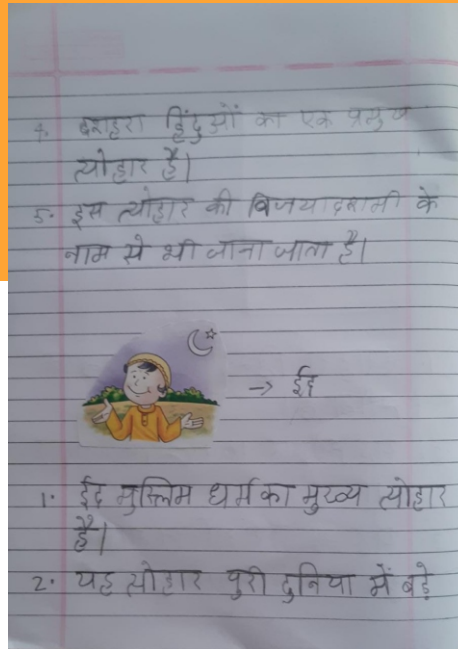 4. दशहरा हिंदुओं का एक प्रमुख
त्योहार है।
5. इस त्योहार की विजयादशमी के
नाम से भी जाना जाता है।
→ ईद
1. ईद मुस्लिम धर्म का मुख्य त्योहार
है।
2. यह त्योहार पुरी दुनिया में बड़े